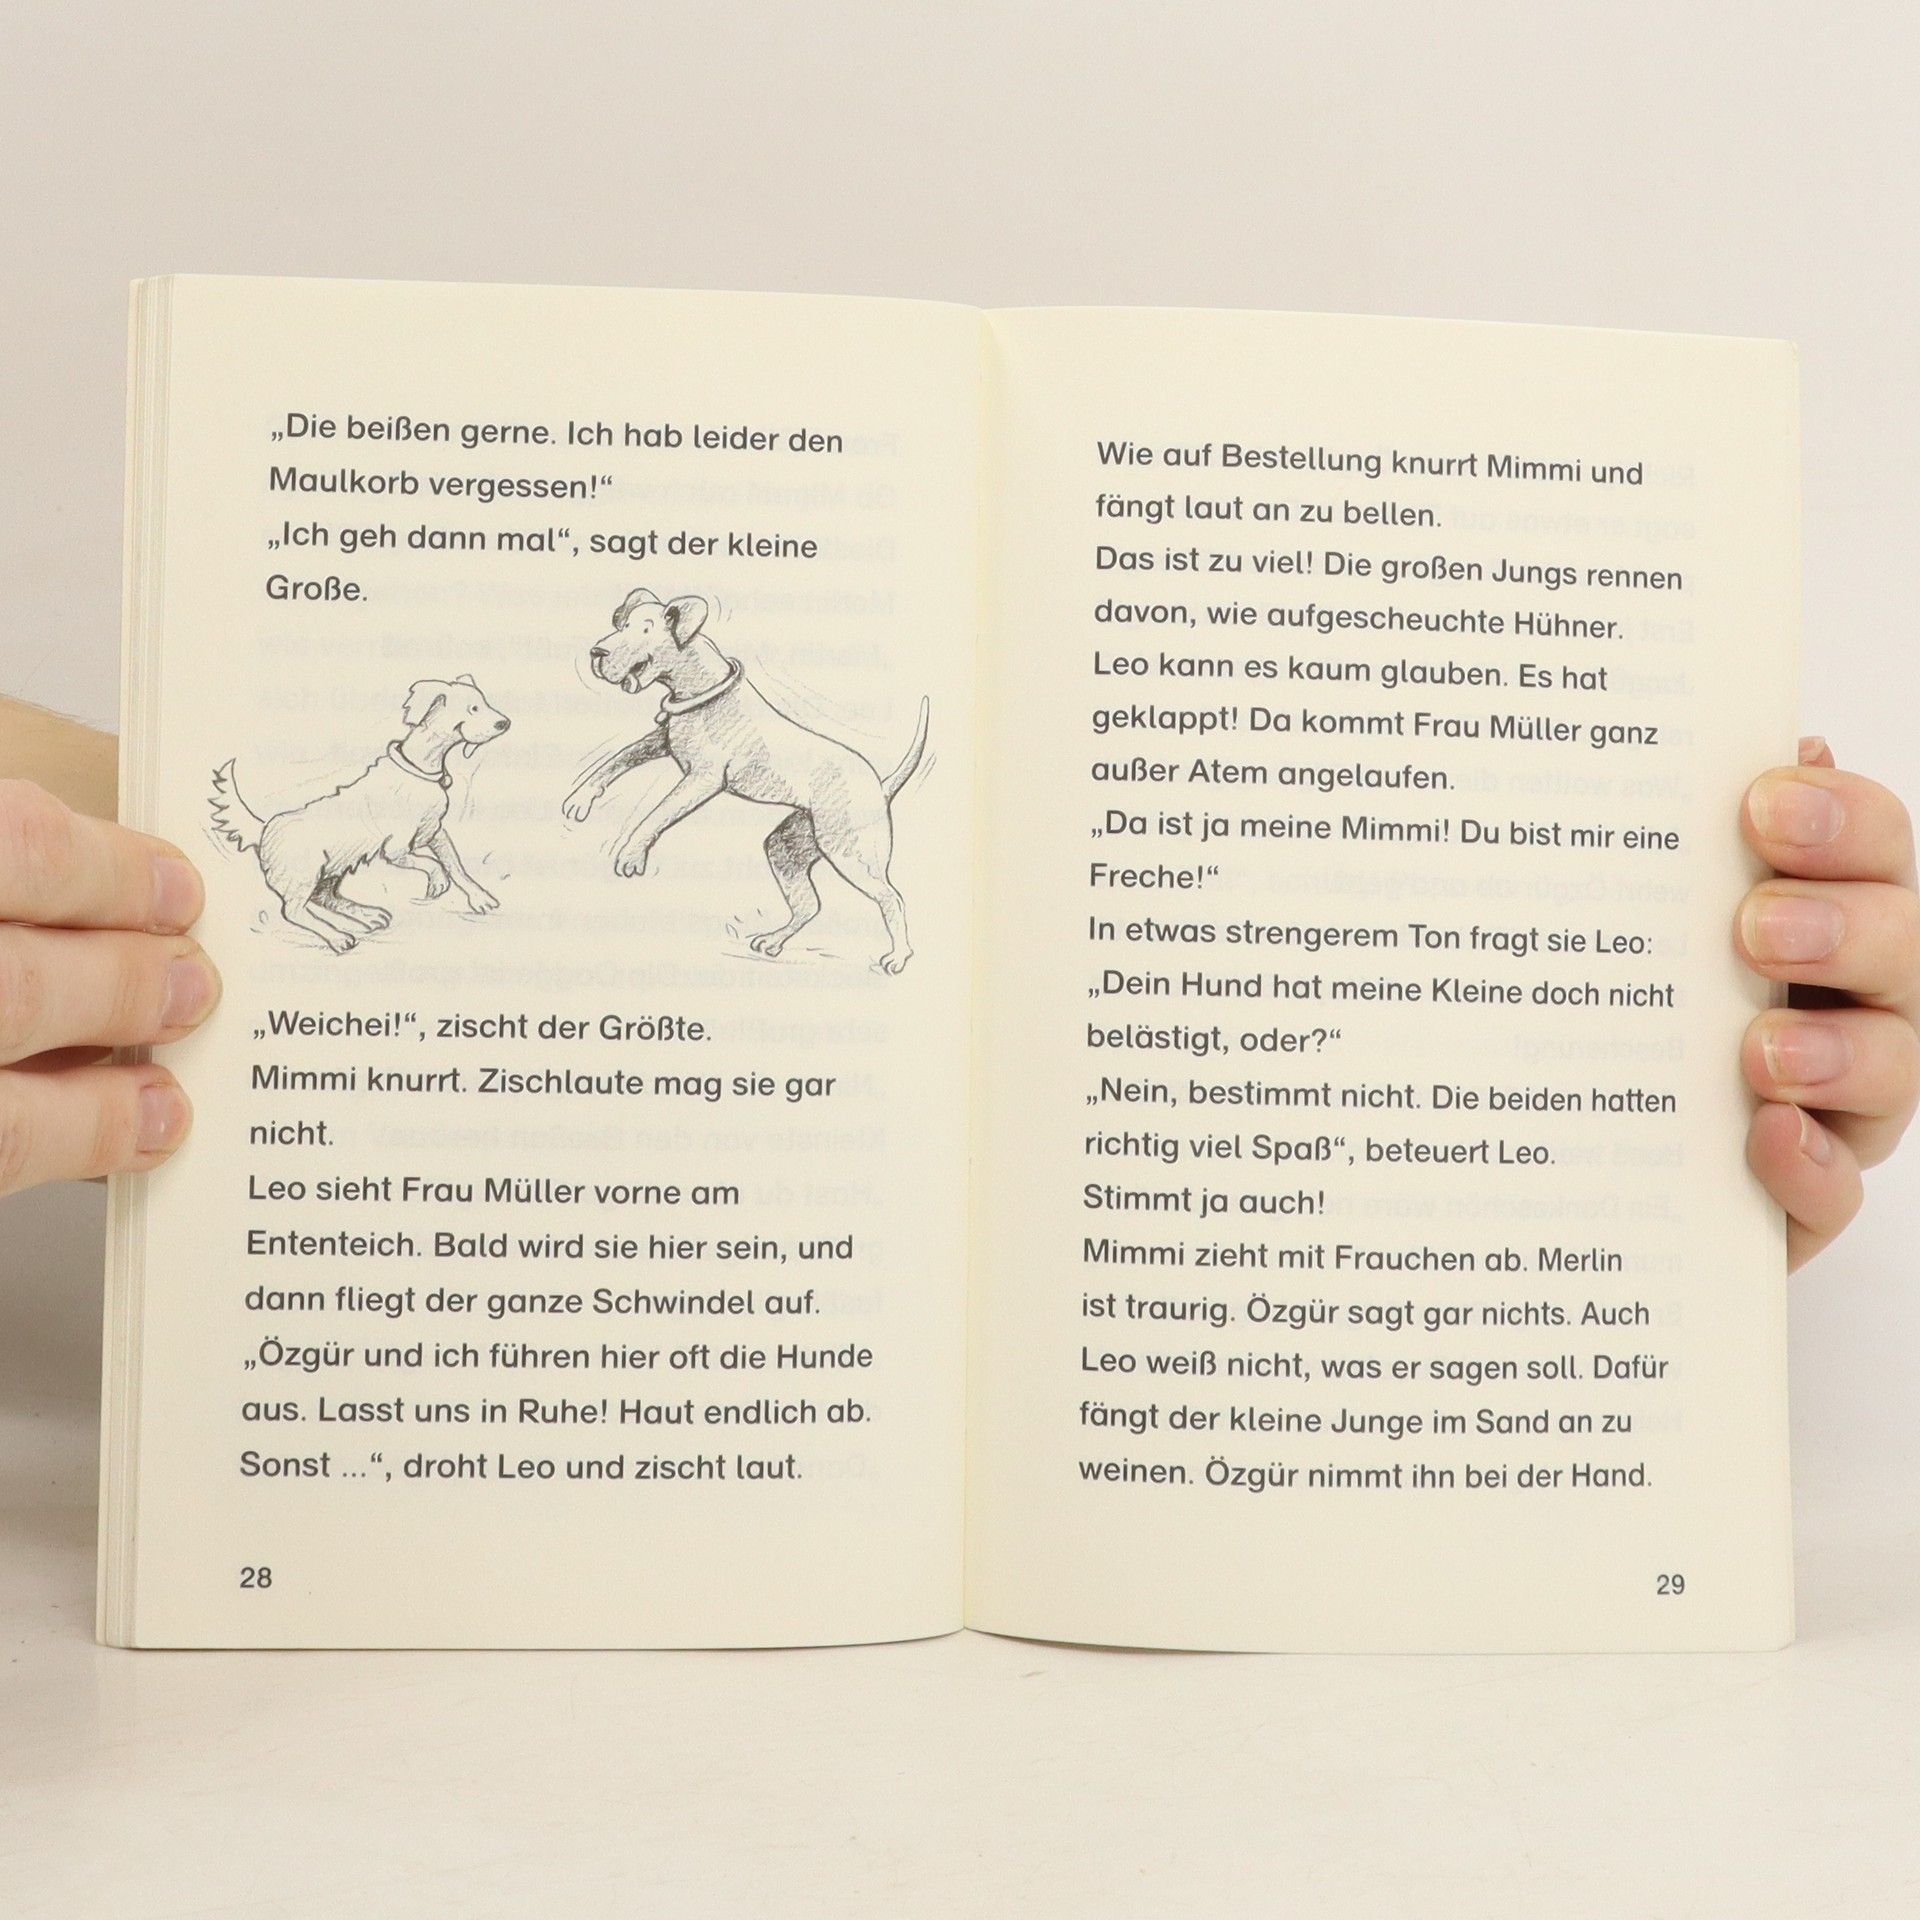 „Die beißen gerne. Ich hab leider den
Maulkorb vergessen!“
„Ich geh dann mal“, sagt der kleine
Große.
„Weichei!“, zischt der Größte.
Mimmi knurrt. Zischlaute mag sie gar
nicht.
Leo sieht Frau Müller vorne am
Ententeich. Bald wird sie hier sein, und
dann fliegt der ganze Schwindel auf.
„Özgür und ich führen hier oft die Hunde
aus. Lasst uns in Ruhe! Haut endlich ab.
Sonst ...“, droht Leo und zischt laut.
28
Wie auf Bestellung knurrt Mimmi und
fängt laut an zu bellen.
Das ist zu viel! Die großen Jungs rennen
davon, wie aufgescheuchte Hühner.
Leo kann es kaum glauben. Es hat
geklappt! Da kommt Frau Müller ganz
außer Atem angelaufen.
„Da ist ja meine Mimmi! Du bist mir eine
Freche!“
In etwas strengerem Ton fragt sie Leo:
„Dein Hund hat meine Kleine doch nicht
belästigt, oder?“
„Nein, bestimmt nicht. Die beiden hatten
richtig viel Spaß“, beteuert Leo.
Stimmt ja auch!
Mimmi zieht mit Frauchen ab. Merlin
ist traurig. Özgür sagt gar nichts. Auch
Leo weiß nicht, was er sagen soll. Dafür
fängt der kleine Junge im Sand an zu
weinen. Özgür nimmt ihn bei der Hand.
29